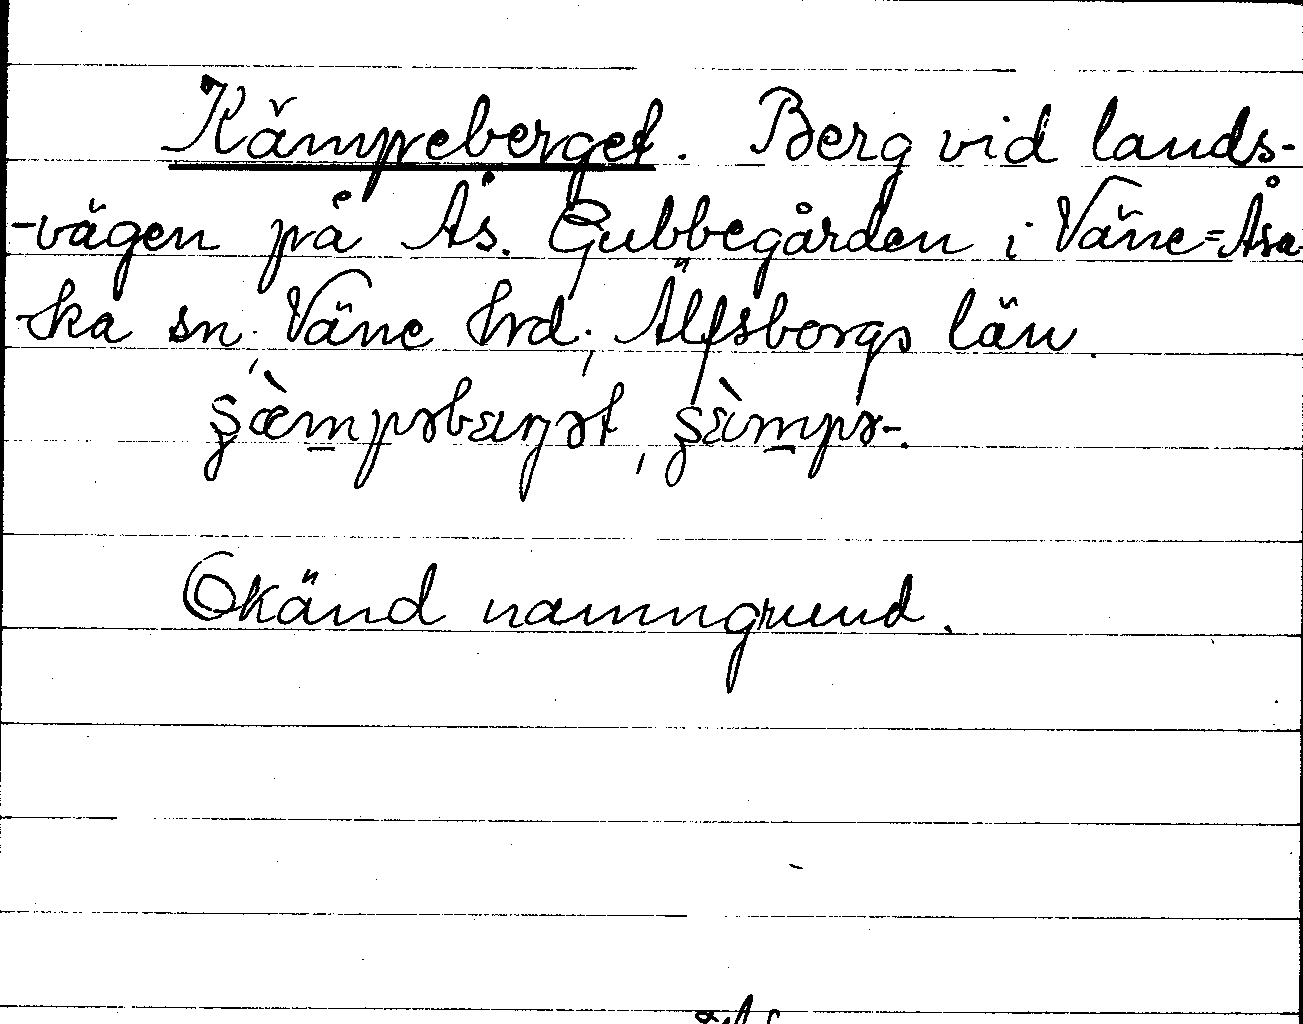 Kämpeberget. Berg vid lands-
-vägen på Ås. Gubbegården i Väne=Åsa-
-ka sn, Väne hrd, Älfsborgs län.
ʂæ̀mpəbærjət, ʂɛ̀mpə-.
Okänd namngrund.